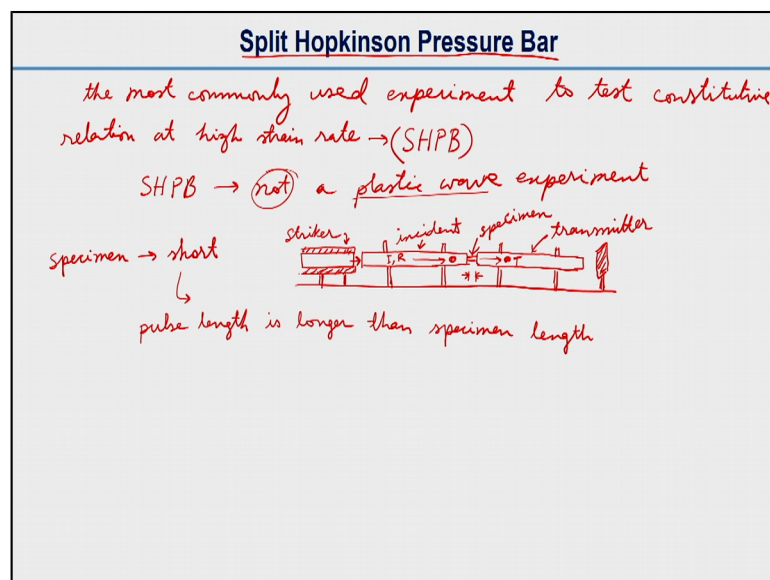 Split Hopkinson Pressure Bar
the most commonly used experiment to test constitutive
relation at high strain rate → (SHPB)
SHPB → not a plastic wave experiment
striker incident specimen transmitter
specimen → short
I, R T
pulse length is longer than specimen length